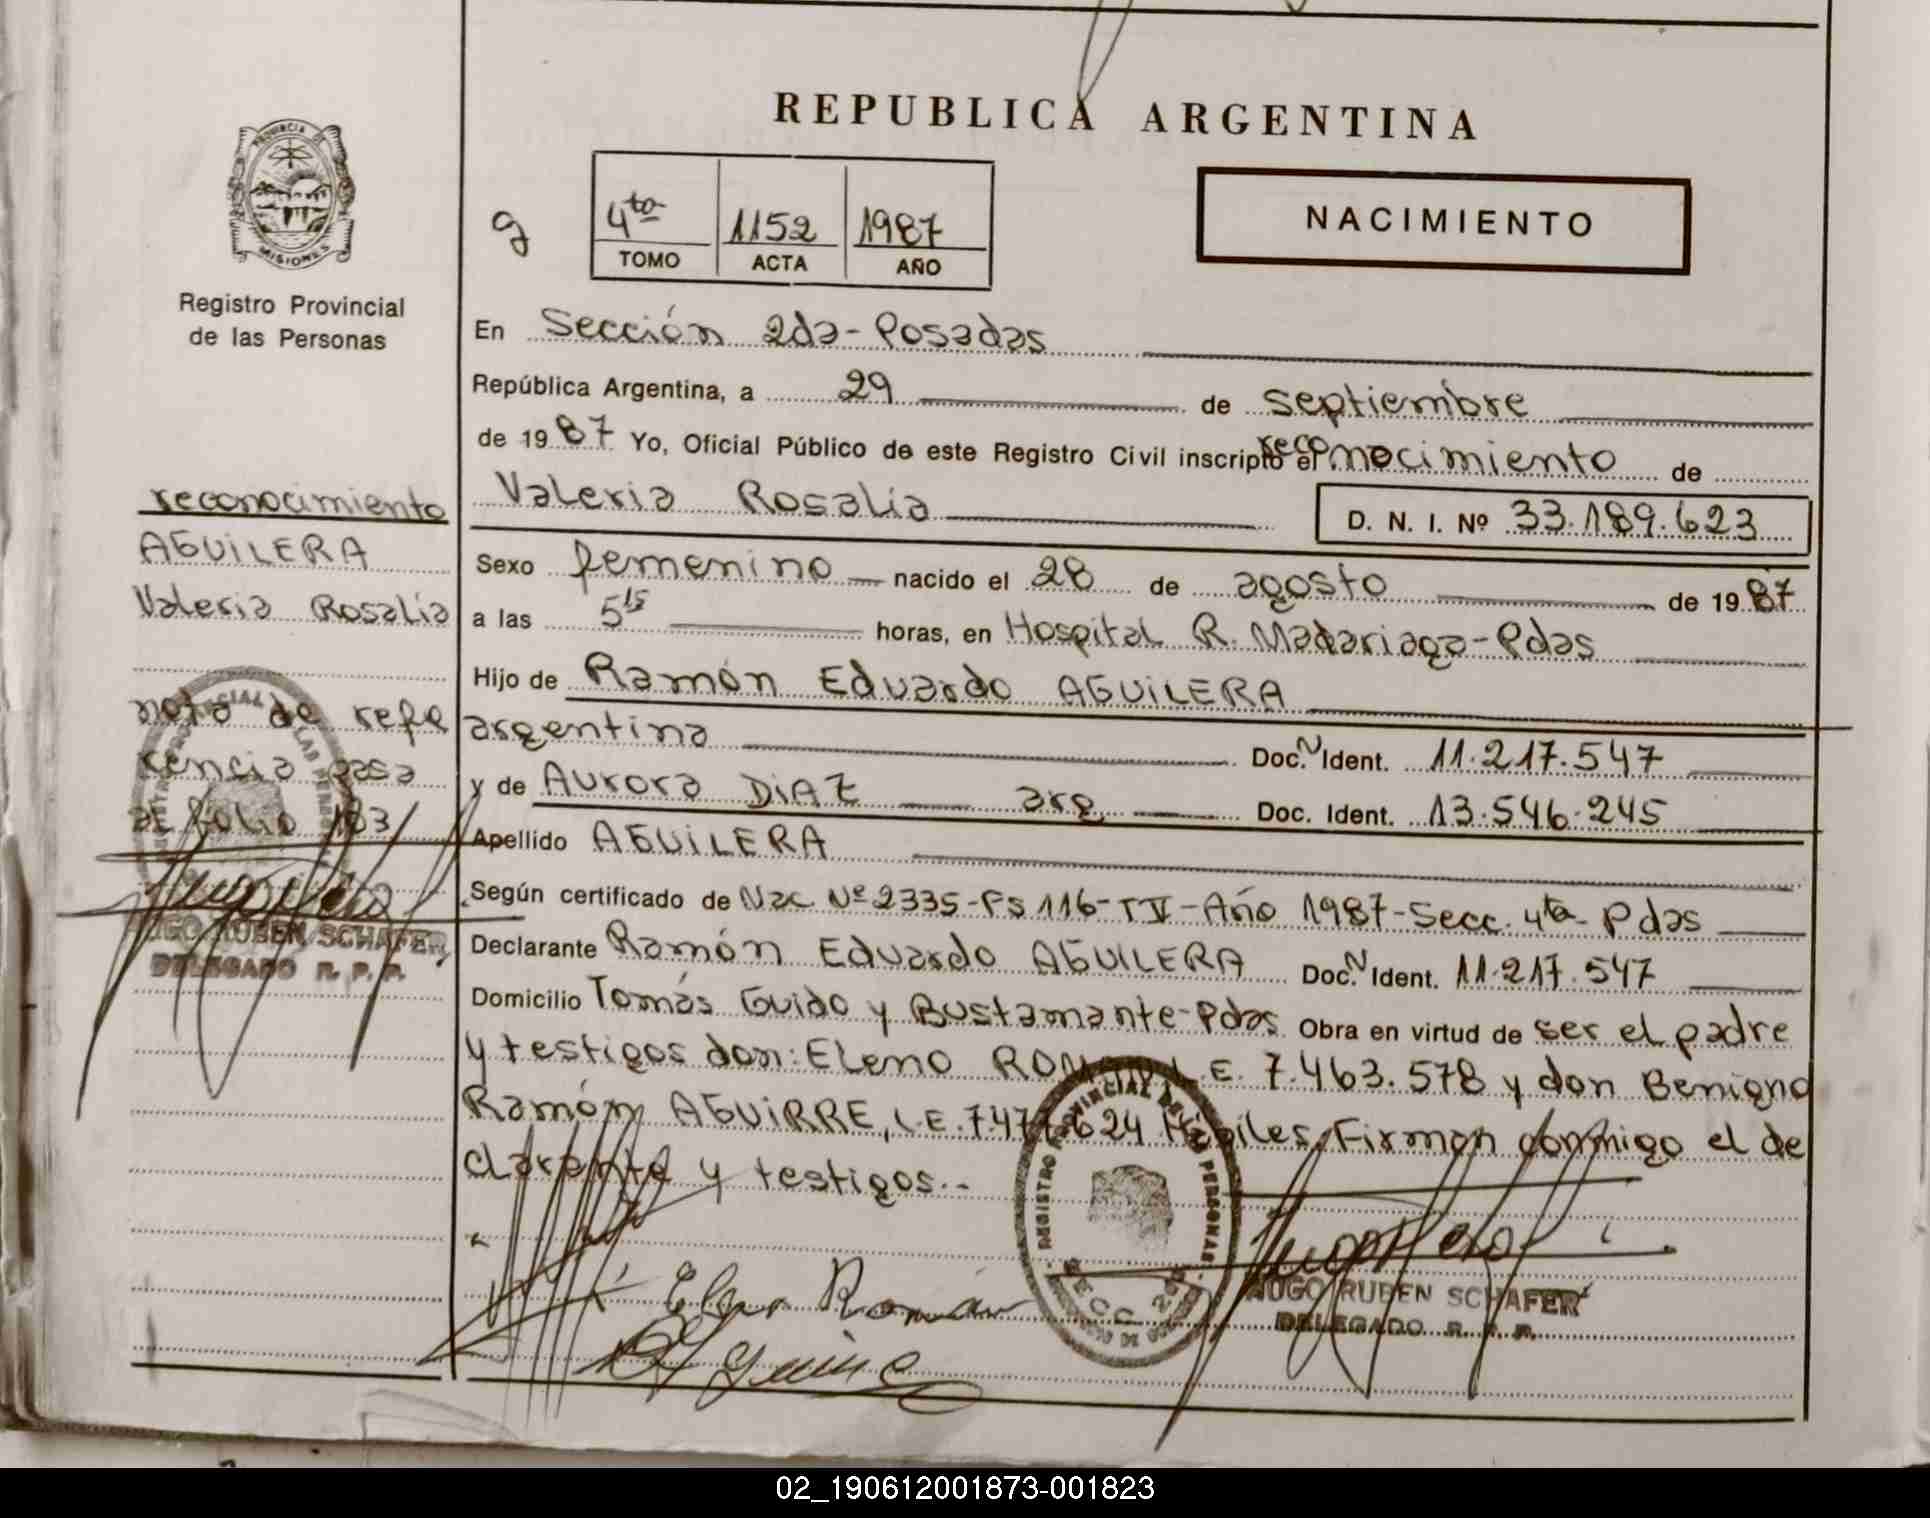 REPUBLICA ARGENTINA
PROVINCIA DE
MISIONES
Registro Provincial
de las Personas
g
4ta 1152 1987
TOMO ACTA AÑO
NACIMIENTO
En Sección 2da-Posadas
República Argentina, a 29 de septiembre
de 1987 Yo, Oficial Público de este Registro Civil inscripto el reconocimiento de
Valeria Rosalía D. N. I. Nº 33.189.623
Sexo femenino nacido el 28 de agosto de 1987
a las 5 15 horas, en Hospital R. Madariaga-Pdas
Hijo de Ramón Eduardo AGUILERA
argentina Doc. N Ident. 11.217.547
y de Aurora DIAZ arg. Doc. Ident. 13.546.245
Apellido AGUILERA
Según certificado de Nac Nº 2335-Fs 116-T IV-Año 1987-Secc. 4ta-Pdas
Declarante Ramón Eduardo AGUILERA Doc. N Ident. 11.217.547
Domicilio Tomás Guido y Bustamante-Pdas Obra en virtud de ser el padre
y testigos don: Eleno ROMAN L.E. 7.463.578 y don Benigno
Ramón AGUIRRE, L.E. 7.477.624 Hábiles, Firman conmigo el de
clarante y testigos..
reconocimiento
AGUILERA
Valeria Rosalía
nota de refe
rencia pasa
al folio 183
HUGO RUBEN SCHAFER
DELEGADO R. P. P.
REGISTRO PROVINCIAL DE LAS PERSONAS
SECC. 2da
Eleno Román
HUGO RUBEN SCHAFER
DELEGADO R. P. P.
02_190612001873-001823